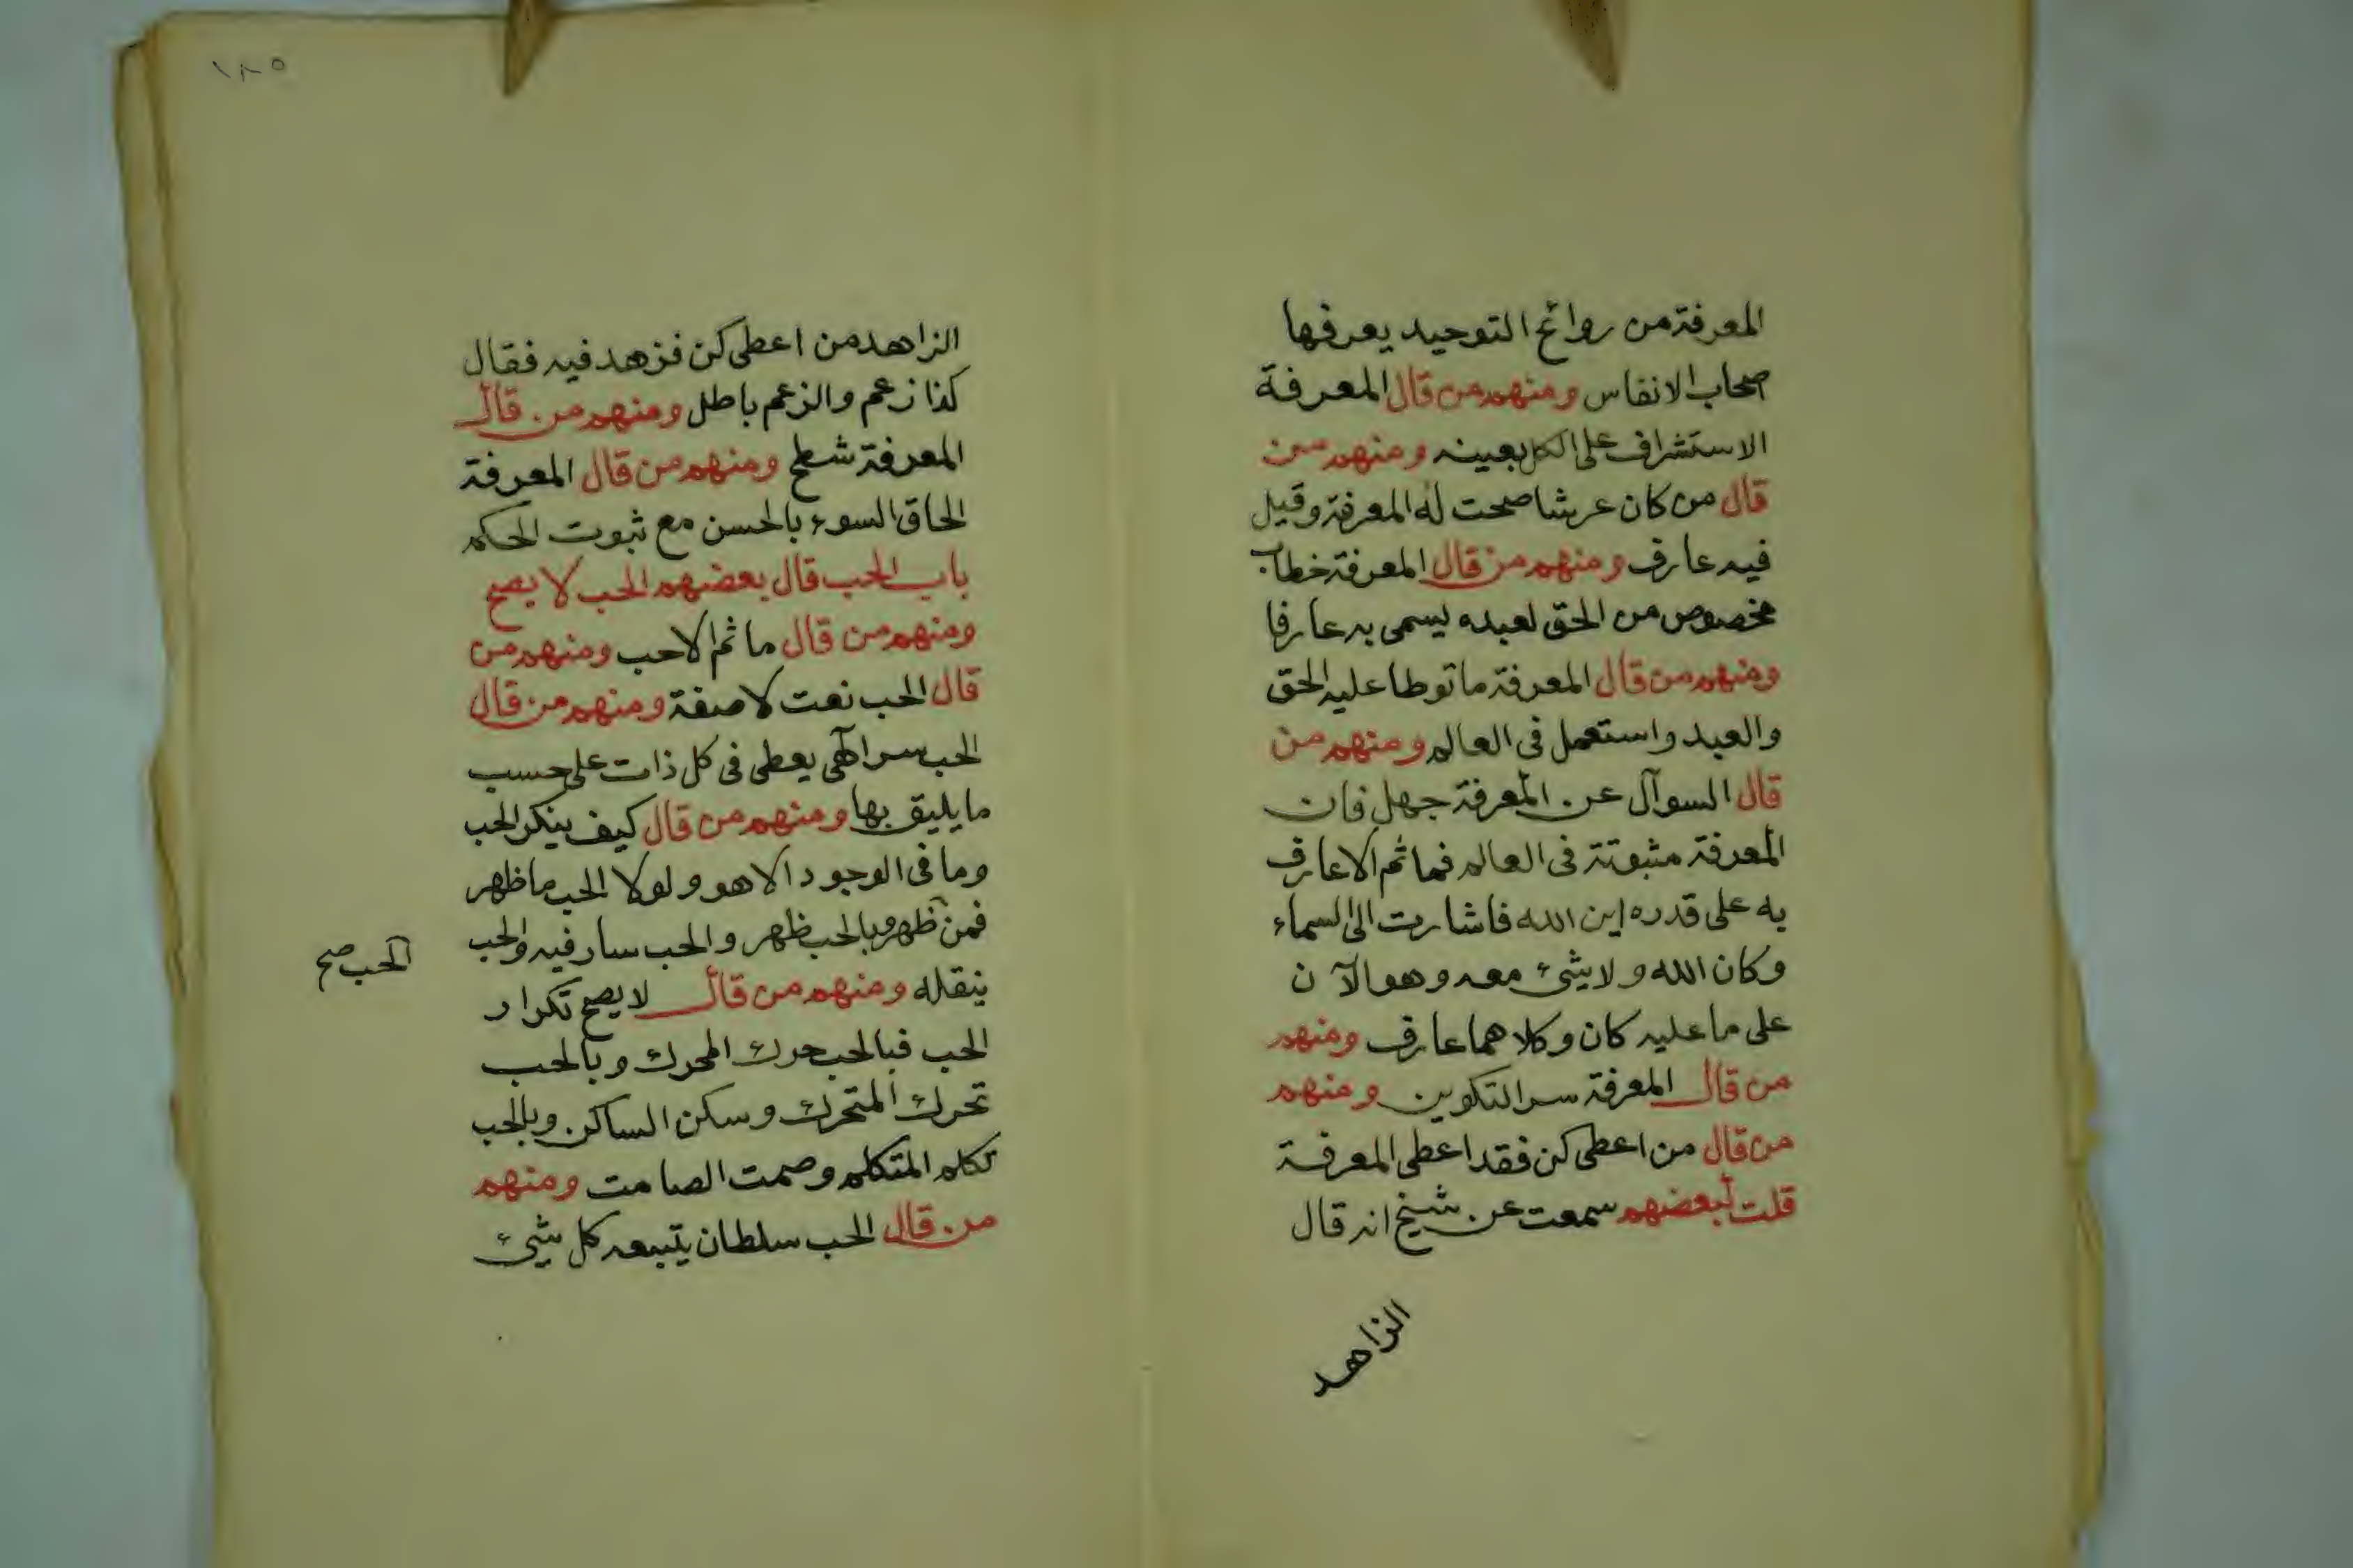 المعرفة من روائح التوحيد يعرفها
صحاب الانفاس ومنهم من قال المعرفة
الاستشراف على الكل بعينه ومنهم من
قال من كان عرشا صحت له المعرفة وقيل
فيه عارف ومنهم من قال المعرفة خطاب
مخصوص من الحق لعبده يسمى به عارفا
ومنهم من قال المعرفة ما توطا عليه الحق
والعبد واستعمل فى العالم ومنهم من
قال السوآل عن المعرفة جهل فان
المعرفة مثبوتة فى العالم فما ثم الا عارف
به على قدره اين الله فاشارت الى السماء
وكان الله ولا شئ معه وهو الآن
على ما عليه كان وكلاهما عارف ومنهم
من قال المعرفة سر التكوين ومنهم
من قال من اعطى كن فقد اعطى المعرفة
قلت لبعضهم سمعت عن شيخ انه قال
الزاهد
١٨٥
الزاهد من اعطى كن فزهد فيه فقال
كذا زعم والزعم باطل ومنهم من قال
المعرفة شطح ومنهم من قال المعرفة
الحاق السوء بالحسن مع ثبوت الحكم
باب الحب قال بعضهم الحب لا يصح
ومنهم من قال ما ثم الا حب ومنهم من
قال الحب نعت لا صفة ومنهم من قال
الحب سر الهى يعطى فى كل ذات على حسب
ما يليق بها ومنهم من قال كيف ينكر الحب
وما فى الوجود الا هو ولولا الحب ما ظهر
فمن ظهر وبالحب ظهر والحب سار فيه والحب
الحب صح
ينقله ومنهم من قال لا يصح تكرار
الحب فبالحب حرك المحرك وبالحب
تحرك المتحرك وسكن الساكن وبالحب
تكلم المتكلم وصمت الصامت ومنهم
من قال الحب سلطان يتبعه كل شئ